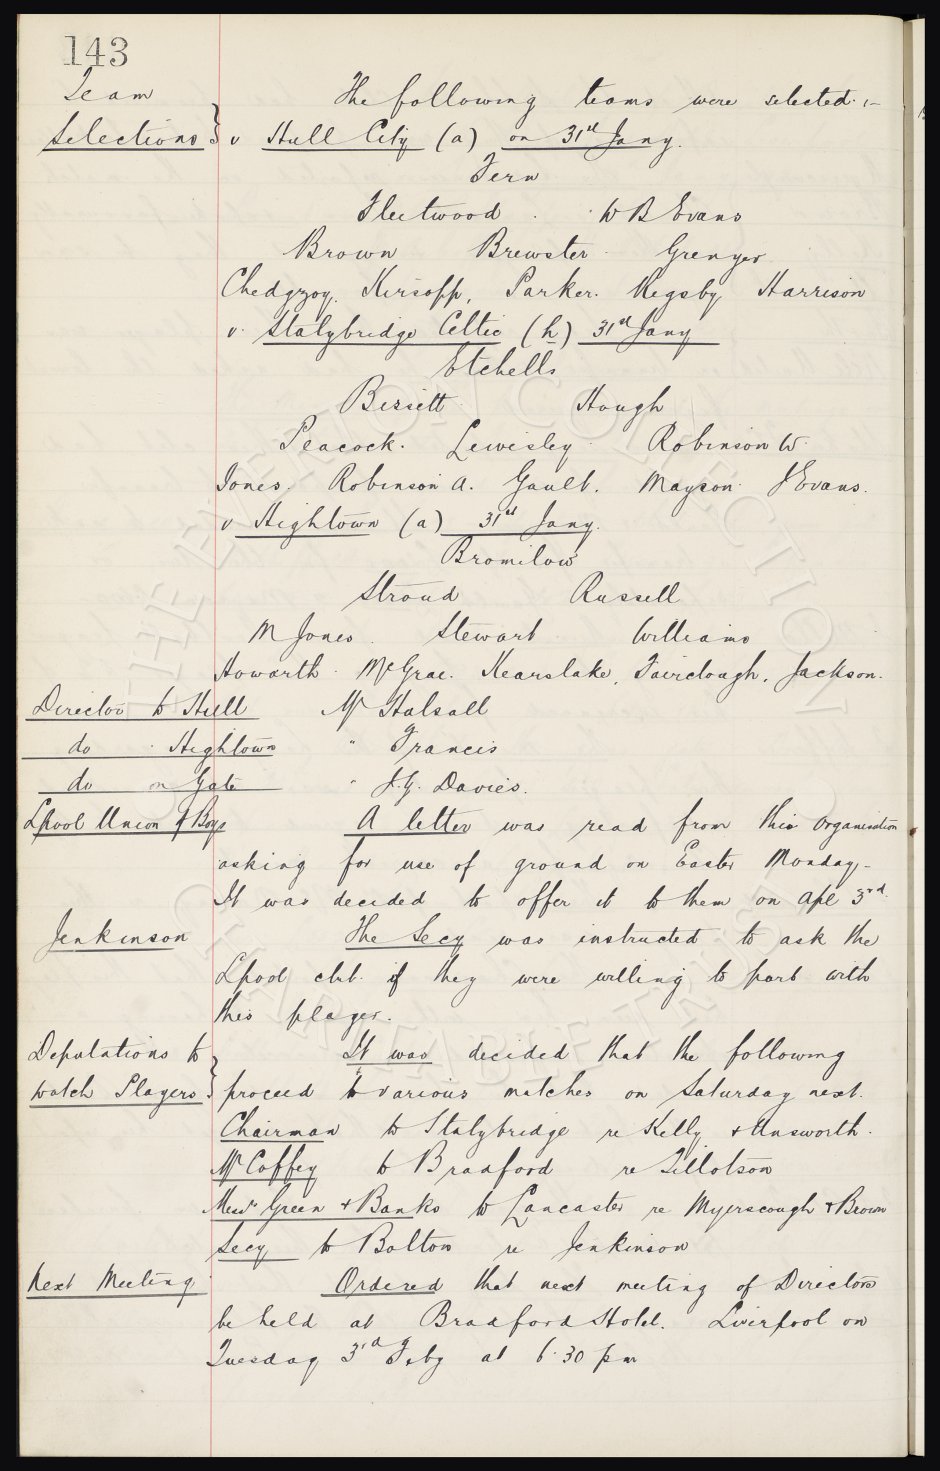 143
Team
Selections } The following teams were selected :-
v Hull City (a) on 31st Jany.
Fern
Fleetwood W B Evans
Brown Brewster Grenyer
Chedgzoy. Kirsopp, Parker. Rigsby, Harrison
v. Stalybridge Celtic (h) 31st Jany
Etchells
Bissett Hough
Peacock. Lewisley Robinson W.
Jones. Robinson A. Gault. Mayson J Evans.
v Hightown (a) 31st Jany.
Bromilow
Stroud Russell
M Jones. Stewart Williams
Howarth. McGrae. Kearslake, Fairclough, Jackson.
Director to Hull Mr Halsall
do Hightown " Francis
do on Gate " J.G. Davies.
Lpool Union of Boys A letter was read from this organisation
asking for use of ground on Easter Monday -
It was decided to offer it to them on Apl 3rd.
Jenkinson The Secy was instructed to ask the
Lpool club if they were willing to part with
this player.
Deputations to It was decided that the following
watch Players } proceed to various matches on Saturday next.
Chairman to Stalybridge re Kelly & Unsworth.
Mr Coffey to Bradford re Tillotson
Messrs Green & Banks to Lancaster re Myerscough & Brown
Secy to Bolton re Jenkinson
Next Meeting Ordered that next meeting of Directors
be held at Bradford Hotel. Liverpool on
Tuesday 3rd Feby at 6.30 pm